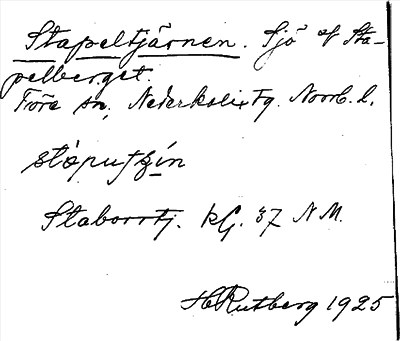 Stapeltjärnen. Sjö of Sta-
pelberget.
Töre sn, Nederkalix tg. Norrb. l.
stáputʃæ̀n
Staborrtj. kG. 37 N M.
H Rutberg 1925